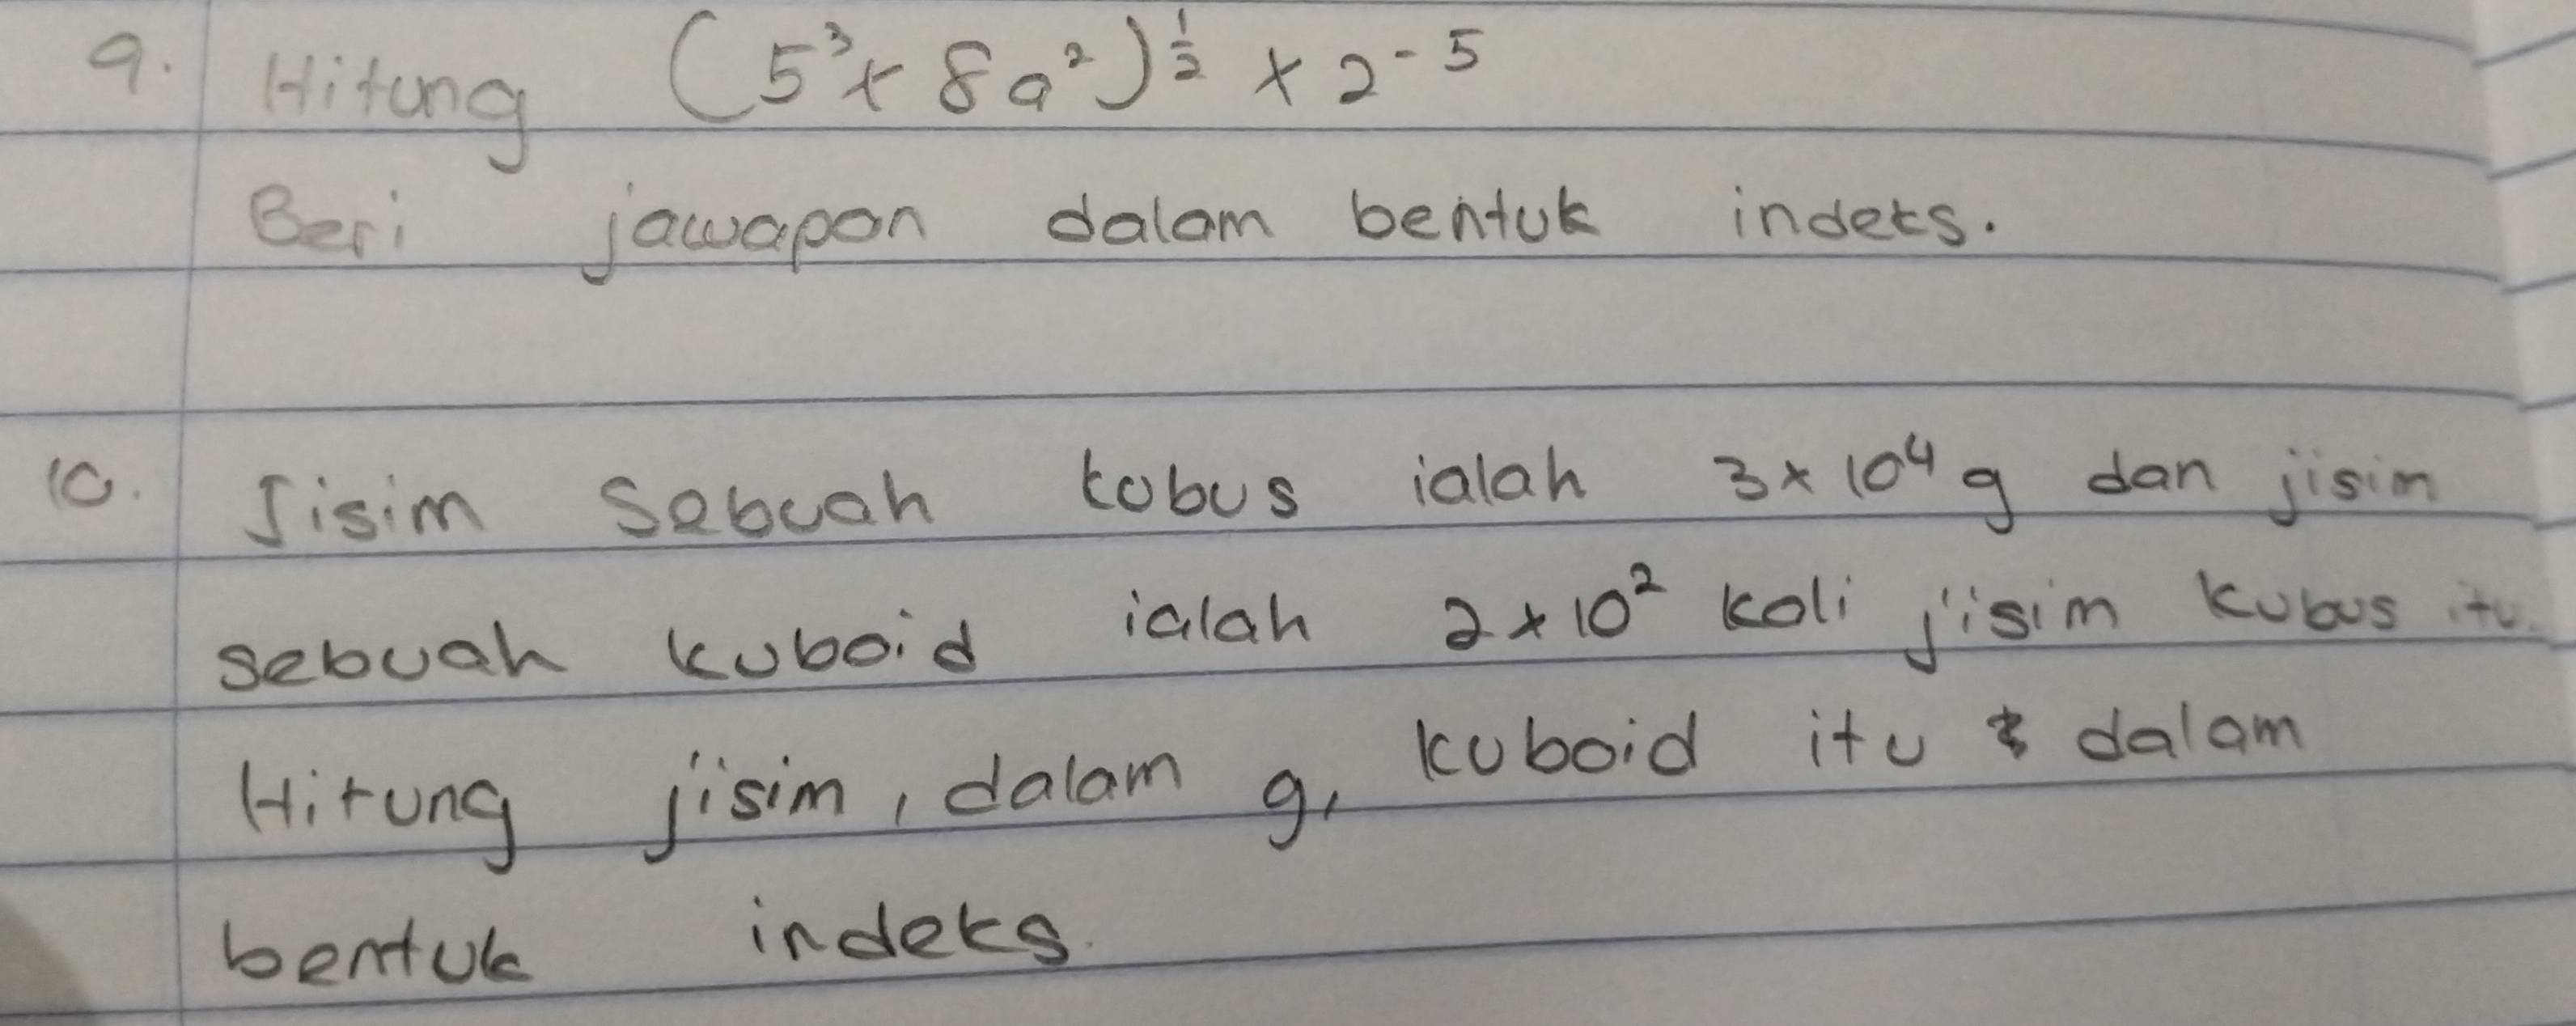 9. Hitung (5³ × 8a²)^½ × 2⁻⁵
Beri jawapan dalam bentuk indeks.
10. Jisim sebuah kubus ialah 3 × 10⁴ g dan jisim
sebuah kuboid ialah 2 × 10² kali jisim kubus itu.
Hitung jisim, dalam g, kuboid itu dalam
bentuk indeks.